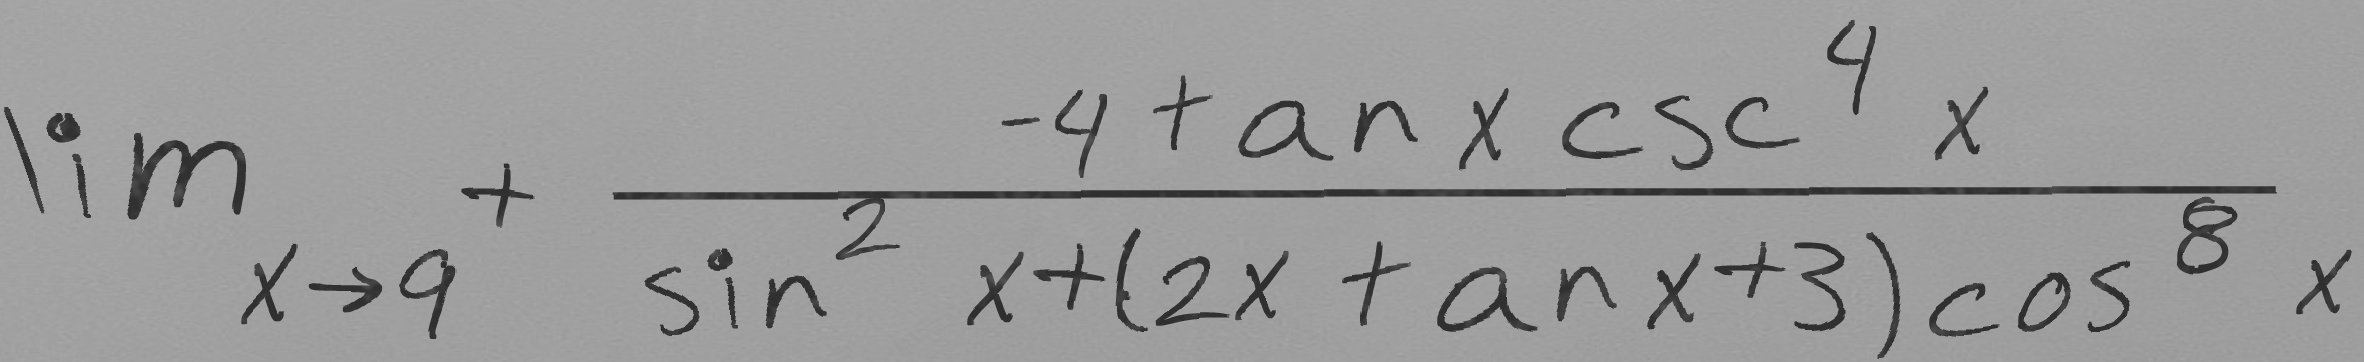 \lim_{x \to 9^+} \frac{-4 \tan x \csc^4 x}{\sin^2 x + (2x \tan x + 3) \cos^8 x}